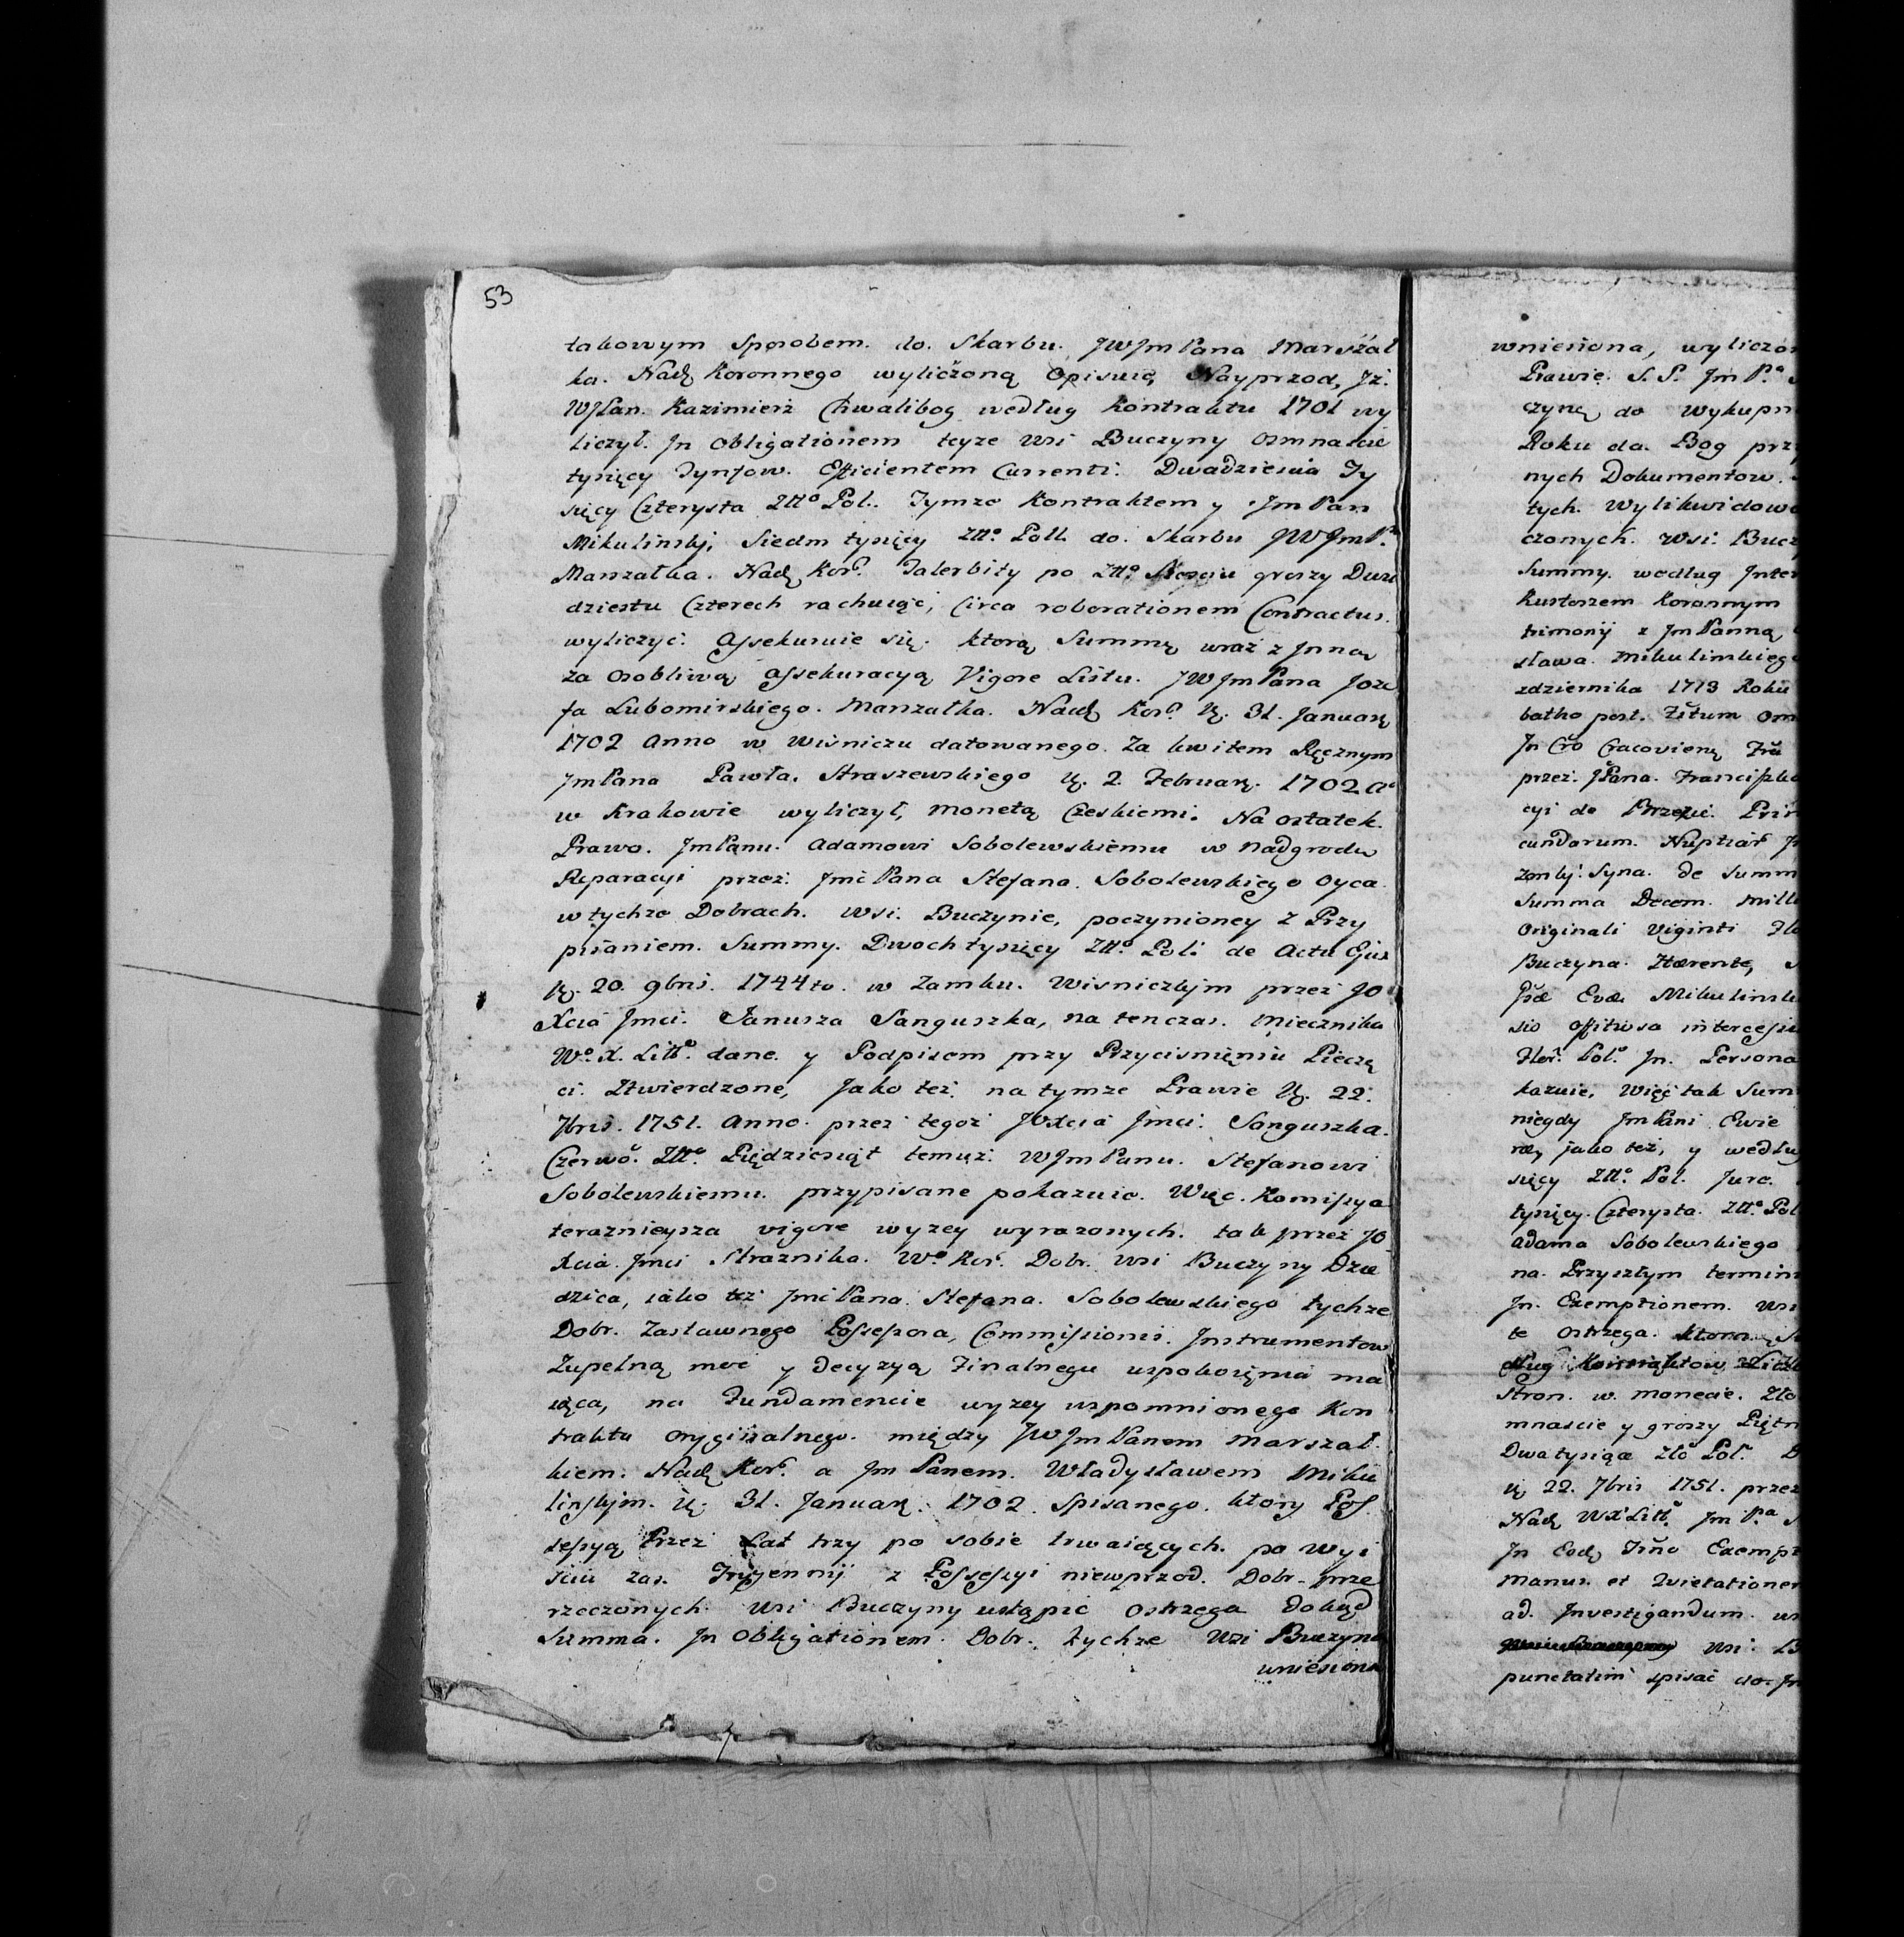 53
takowym sposobem. do. Skarbu. JWJmPana Marszał
ka. Nadǫ Koronnego wyliczoną Opisuią Nayprzod, Jż.
WJPan. Kazimierz Chwalibog według Kontraktu 1701 wy
liczył. Jn obligationem teyze Wsi Buczyny osmnascie
tysięcy Tynfow. Efficientem Currenti. Dwadziescia Ty
sięcy Czterysta Złło Pol. Tymze Kontraktem y JmPan
Mikulinskj, Siedm tysięcy Złło. Poll. do. Skarbu JWJmPa
Marszałka. Nadǫ Kor. Talerbity po Złło groszy Dwu
dziestu Czterech rachuiąc, Circa roborationem Contractus.
wyliczyć. Assekuruie się. ktorą Summę wraz z Jnną
za osobliwą Assekuracyą Vigore Listu. JWJmPana Joze
fa Lubomirskiego. Marszałka. Nadǫ Kor. 31. Januarǫ
1702 Anno w Wisniczu datowanego. Za kwitem Ręcznym
JmPana Pawła. Straszewskiego 2. Februarǫ. 1702 Ao
w Krakowie wyliczył, monetą Czeskiemi. Na ostatek.
Prawo. JmPanu. Adamowi Sobolewskiemu w nadgrodę
Reparacyi przez. JmćPana Stefana. Sobolewskiego Oyca
w tychze Dobrach. Wsi. Buczynie, poczynioney z Przy
pisaniem. Summy. Dwoch tysięcy Złło. Pol. de Actu Ejus
20. 9bris. 1744to. w Zamku. Wisnickjm przez JO
Xcia Jmci. Janusza Sanguszka, na tenczas. Miecznika
Wo. X. Litto. dane. y Podpisem przy Przycisnięniu Pieczę
ci. Ztwierdzone, Jako też. na tymze Prawie 22.
7bris. 1751. Anno. przez tegoż JOXcia Jmci. Sanguszka.
Czerwo. Złło. Pięcdziesiąt temuż. WJmPanu. Stefanowi
Sobolewskiemu. przypisane pokazuie. Więc. Komissya
teraznieysza vigore wyzey wyrazonych. tak przez JO
Xcia. Jmci Straznika. Wo Kor. Dobr. Wsi Buczyny Dzie
dzica, iako też JmćPana. Stefana. Sobolewskiego tychze
Dobr. Zastawnego Possessora, Commissionis. Jnstrumentow
Zupełną moc y Decyzyą Finalnego uspokoięnia ma
iąca, na Fundamencie wyzey wspomnionego Kon
traktu Oryginalnego. między JWJmPanem Marszał.
kiem. Nadǫ Kor. a JmPanem. Władysławem Miku
linskjm. 31. Januarǫ. 1702. Spisanego. ktory Pos
sessyą Przez Lat trzy po sobie trwaiących. po wyi
sciu zas. Tryennij z Possessyi niewprzod. Dobr. prze
rzeczonych. Wsi Buczyny ustąpic ostrzega Dokąd
Summa. Jn Obligationem. Dobr. tychze Wsi Buczyna
wniesiona
wniesiona, wyliczon
Prawie. S.P. JmPa
czynę do wykupn
Roku da. Bog prz
nych Dokumentow.
tych. Wylikwidow
czonych. Wsi. Bucz
Summy. według Jnter
Kustoszem Koronnym
trimonij z JmPanną
sława. Mikulinskieg
zdziernika 1713 Roku
batho post. Festum Om
Jn Cracovien
przez. JPana. Franciszk
cyi do Brzezie. Pri
cundarum. Nuptiar
Syna. de Summ
Summa Decem. Mille
Originali Viginti
Buczyna. Hærente,
Evæ Mikulinsk
sio intercessi
Pol. Jn. Persona
kazuie, Więc tak Sum
niegdy JmPani Ewie
jako też, y według
sięcy Złło. Pol. Jure.
tysięcy. Czterysta. Złło. Pol
Adama Sobolewskiego
na. Przyszłym termin
Jn. Exemptionem. Wsi
te ostrzega.
stron. w. monecie. Zło
mnascie y groszy Piętn
Dwa tysiące Zło Pol. D
22. 7bris 1751. przez
Nadǫ WXLitt. JmPa
Jn Eodǫ Exempt
Manus. et Quietationem
ad. Jnvestigandum. w
Wsi. B
punctatim spisać do. Jn